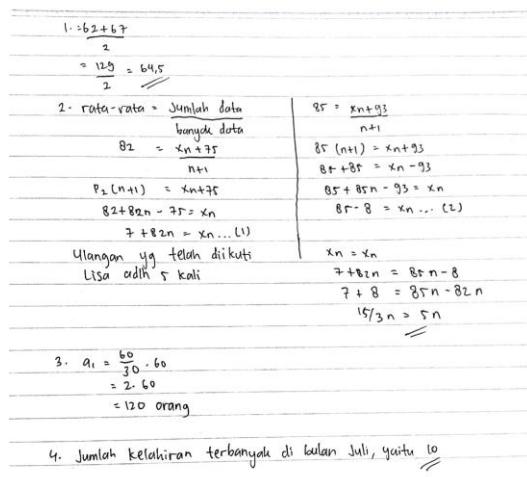 1. = 62+67
2
= 129 = 64,5
2
2. rata-rata = Jumlah data
banyak data
82 = xn+75
n+1
P2 (n+1) = xn+75
82+82n - 75 = xn
7 + 82n = xn ... (1)
Ulangan yg telah diikuti
Lisa adlh 5 kali
85 = xn+93
n+1
85 (n+1) = xn+93
85 +85 = xn - 93
85 + 85n - 93 = xn
85 - 8 = xn ... (2)
xn = xn
7+82n = 85n-8
7 + 8 = 85n - 82n
15/3 n = 5n
3. a1 = 60 . 60
30
= 2. 60
= 120 orang
4. Jumlah kelahiran terbanyak di bulan Juli, yaitu 10